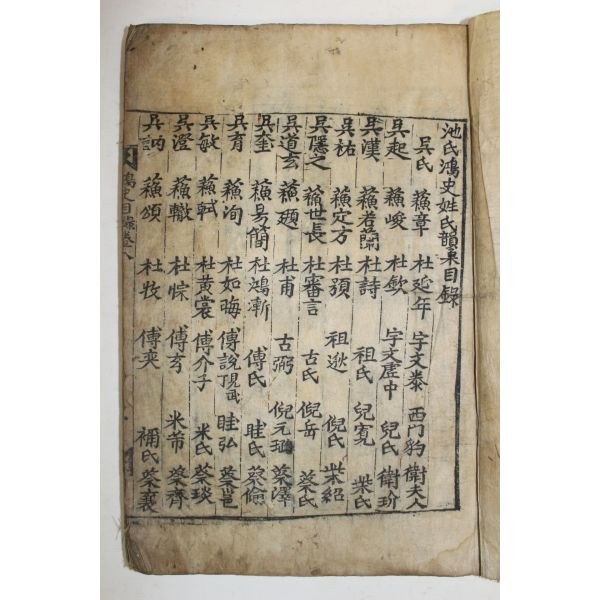 池氏鴻史姓氏韻東目錄
吳氏 蘇章 杜延年 宇文泰 西門豹 衛夫人
吳起 蘇峻 杜欽 宇文虛中 兒氏 衛玠
吳漢 蘇老蘭 杜詩 祖氏 兒寬 柴氏
吳祐 蘇定方 杜預 祖逖 倪氏 柴紹
吳隱之 蘇世長 杜審言 古氏 倪岳 蔡氏
吳道玄 蘇頲 杜甫 古弼 倪元璐 蔡澤
吳奎 蘇易簡 杜鴻漸 傅氏 眭氏 蔡儉
吳育 蘇洵 杜如晦 傅說 眭弘 蔡邕
吳敏 蘇軾 杜黃裳 傅介子 米氏 蔡琰
吳澄 蘇轍 杜悰 傅玄 米芾 蔡齊
吳訥 蘇頌 杜牧 傅奕 禰氏 蔡襄
鴻史目錄卷八